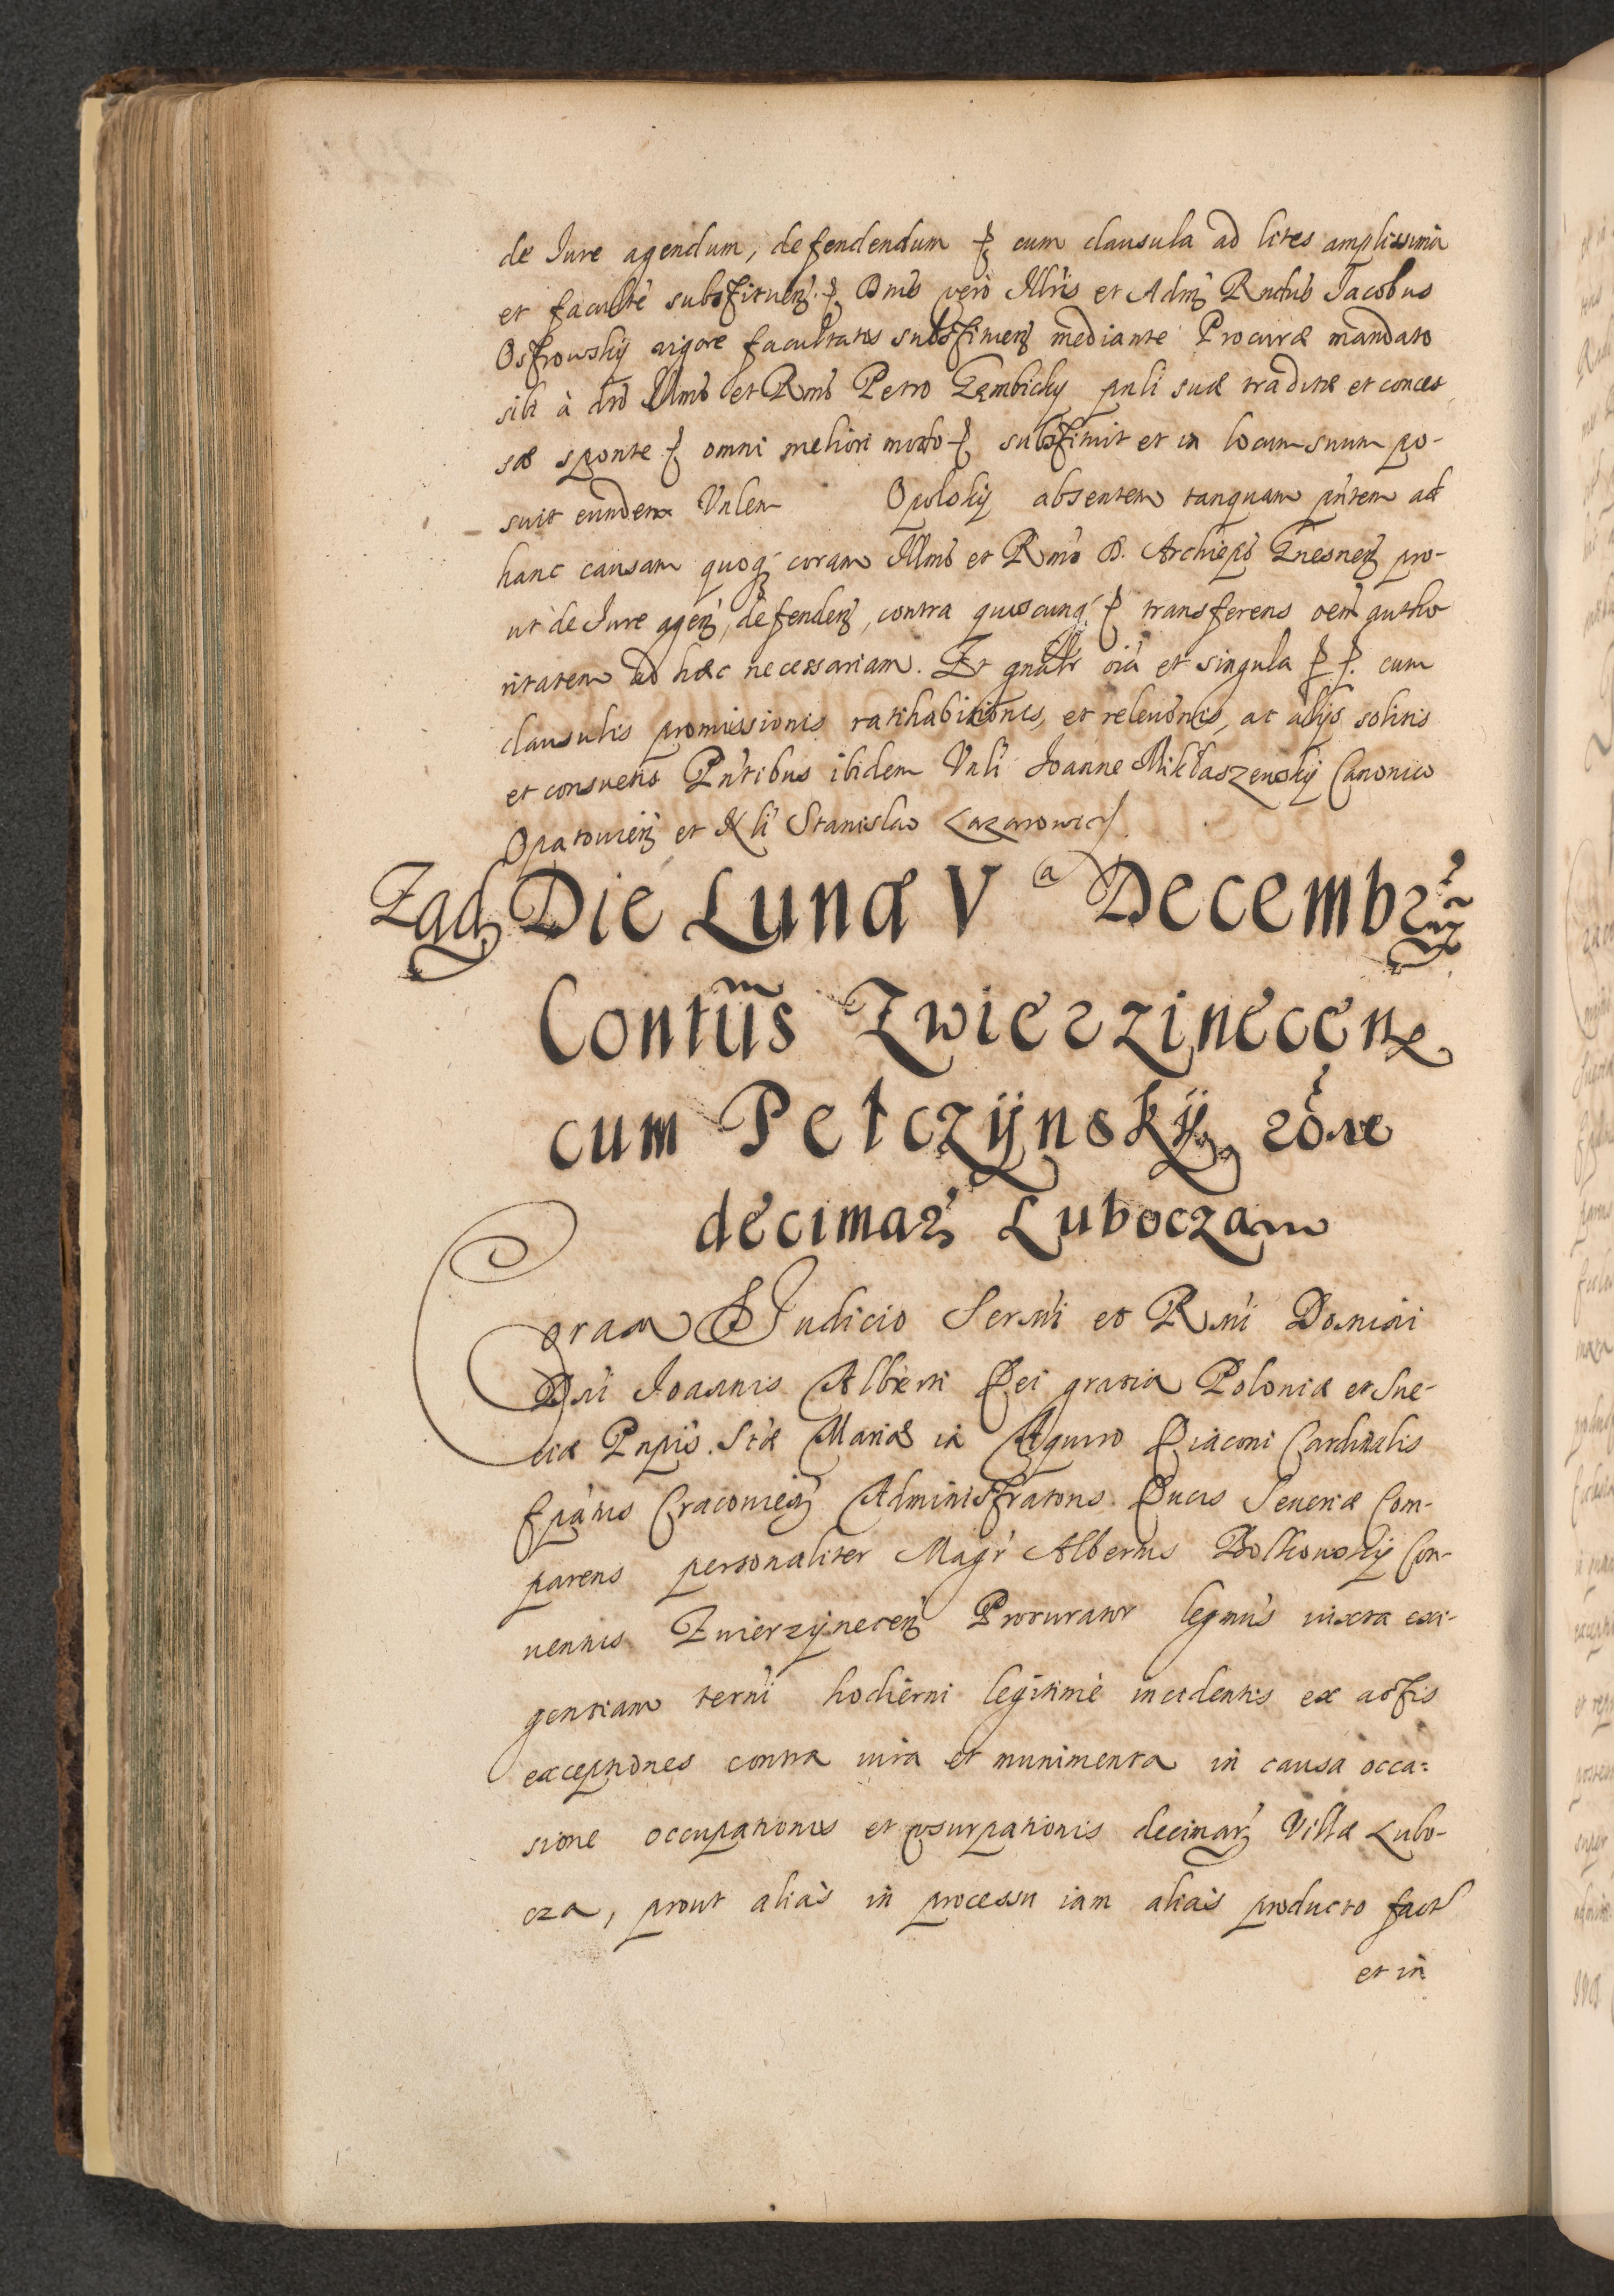 de Iure agendum, defendendum ꝛ cum clausula ad lites amplissima
et facultẽ substituen̄ ꝛ Dnūs vero Illris et Admȝ Rndus Jacobus
Ostrowskij vigore facultatis substituen̄ mediante Procuræ mandato
sibi à dto Illmo et Rmo Petro Gembicky pnli suæ traditæ et conces
sæ sponte ꝛ omni meliori modo ꝛ substituit et in locum suum po-
suit eundem Vnlem Opolskij absentem tanquam pñtem ad
hanc causam quoqȝ coram Illmo et Rmo D. Archiepo Gnesnen̄ pro-
ut de Iure agen̄, defenden̄, contra quoscunqȝ ꝛ transferens oem̃ autho
ritatem ad hæc necessariam. Et gnalr oia et singula ꝛ ꝛ. cum
clausulis promissionis ratihabitionis, et relevōnis, ac alijs solitis
et consuetis Pñtibus ibidem Vnli Joanne Miklaszewskij Canonico
Opatovien̄ et Nli Stanislao Lazarowicȝ
Zadȝ Die Lunæ Vᵃ Decembr̃
Contūs Zwierzinecen̄
cum Pełczijnskij rōne
decimar̃ Luboczam
Coram Judicio Sermi et Rmi Domini
Dni Joannis Alberti Dei gratia Poloniæ et Sue-
ciæ Pnpis. Stæ Mariæ in Aquiro Diaconi Cardinalis
Epatus Cracovien̄ Administratoris. Ducis Seueriæ Com-
parens personaliter Magr Albertus Con-
uentus Zwierzijnecen̄ Procurator legmus iuxta exi-
gentiam termi hodierni legitimè incidentis ex actis
exceptiones contra iura et munimenta in causa occa=
sione occupationis et vsurpationis decimarȝ Villæ Lubo-
cza, prout alias in processu iam alias producto fact
et in